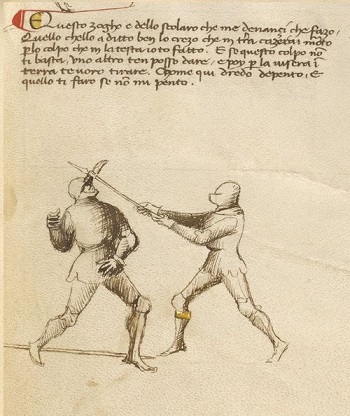 Questo zogho e dello scolaro che me denançi che fazo,
Quello chello a ditto ben lo crezo che in tra cazerai moto
plo colpo che in la testa io to fatto. E se questo colpo nō
ti basta, uno altro ten posso dare, e poy p la visera ī
terra te voro tirare. Chome qui dredo depento, E
quello ti faro se nō mi pento.